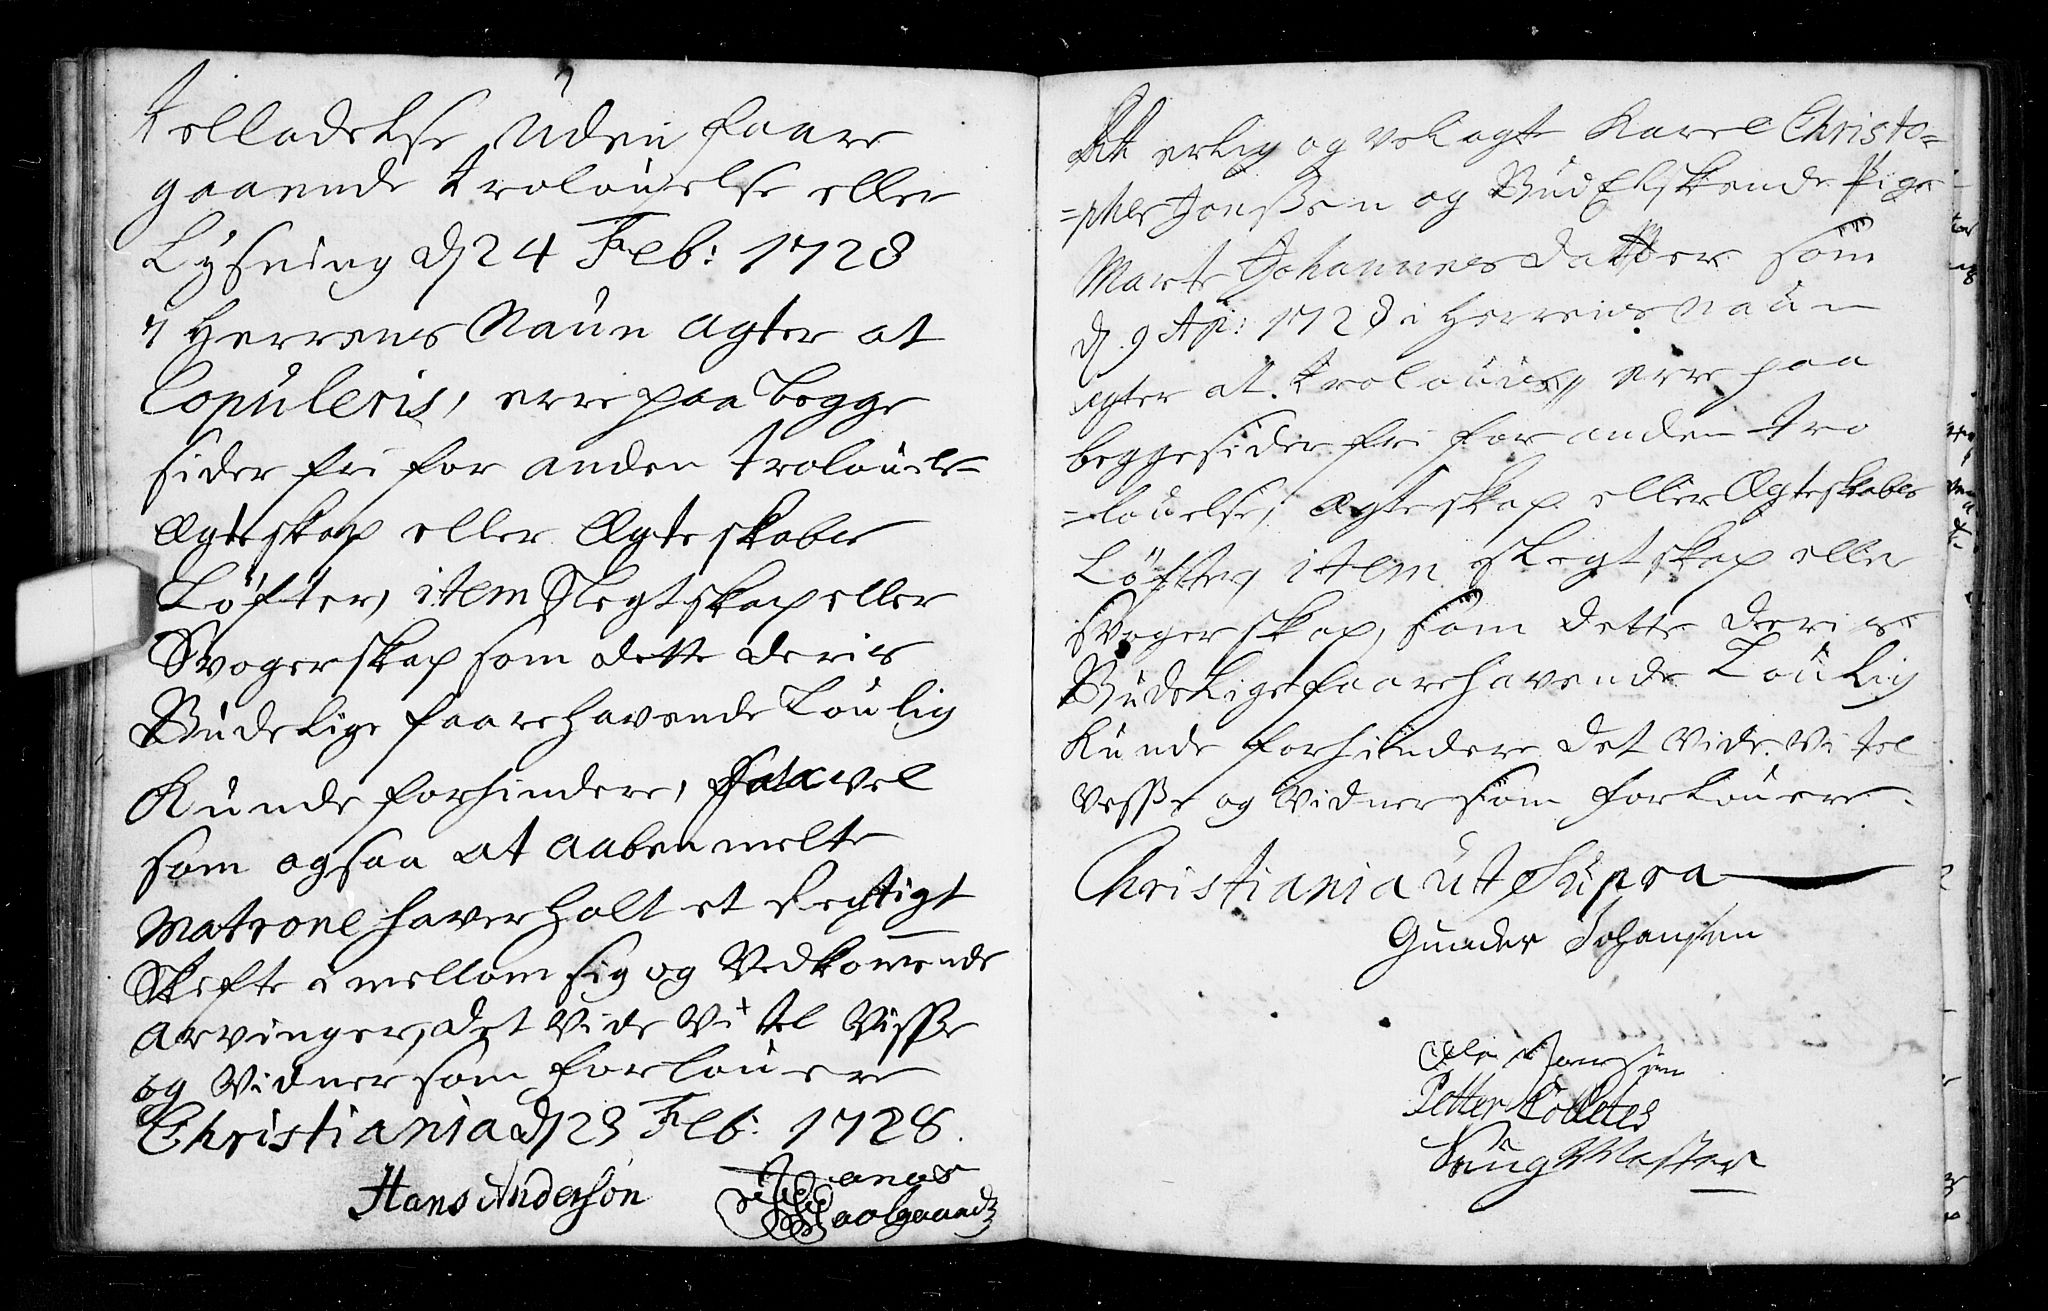 telladelse uden faare
gaaende trolouelse eller
Lysning d 24 Feb: 1728
i Herrens Naun agter at
Copuleris, erre paa begge
sider fri for anden trolouels-
Ægteskap eller Ægteskabs
Løfter, item Slegtskap eller
Svogerskap som dette deris
Budelige faarehavende Loulig
Kunde forhindere, saavel
som ogsaa at aabenmelte
Matrone haver holt et Rigtigt
Skifte imellom sig og Vedkomende
arvinger, det Vide Vi til Visse
og Vidner som forlouere
Christiania d 23 Feb: 1728.
Hans Anderson
At erlig og velagt Karel Christo=
=pher Jonssen og Gudelskende Pige
Marte Johannes datter som
d. 9 Ap: 1728 i Herrens Naun
agter at trolouis, erre paa
begge sider fri for anden tro
=louelse, Ægteskap eller Ægteskabs
Løfter, item Slegtskap eller
Svogerskap, som dette deris
Budelige faarehavende Loulig
Kunde forhindere det vide vi til
visse og vidner som forlouere.
Christiania ut Supra
Gunder Johansen
Ole Joensen
Petter Colletes